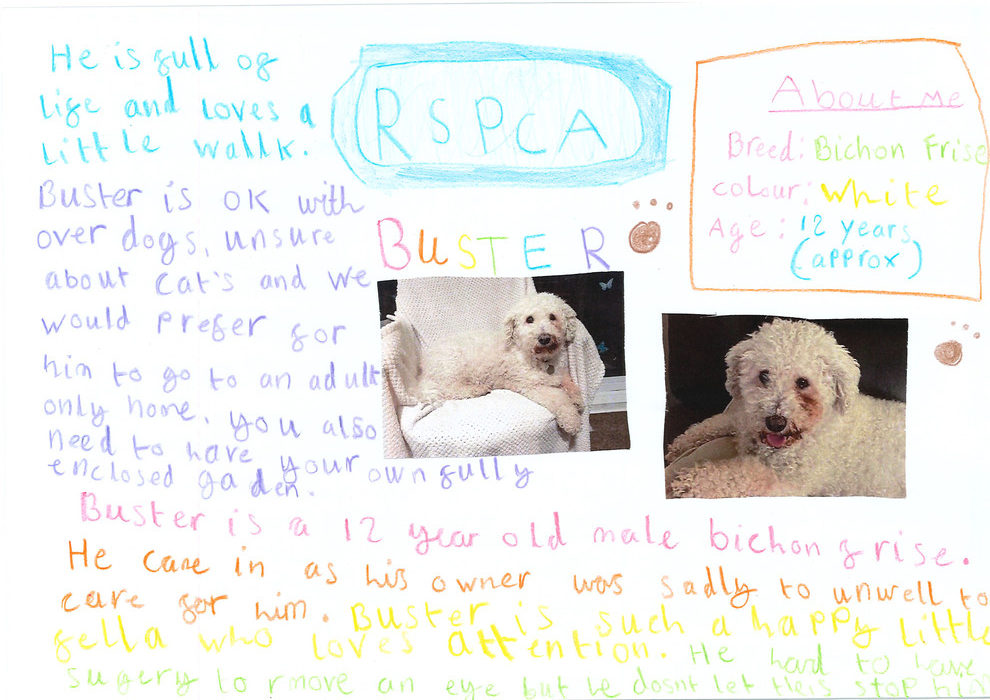 He is full of
life and loves a
little wallk.
RSPCA
About Me
Breed: Bichon Frise
colour: white
Age: 12 years
(approx)
BUSTER
Buster is OK with
over dogs, unsure
about cat's and we
would prefer for
him to go to an adult
only home. you also
need to have
your own fully
enclosed gaden.
Buster is a 12 year old male bichon frise.
He came in as his owner was sadly to unwell to
care for him. Buster is such a happy little
fella who loves attention. He had to have
sugery to rmove an eye but he dosnt let this stop him